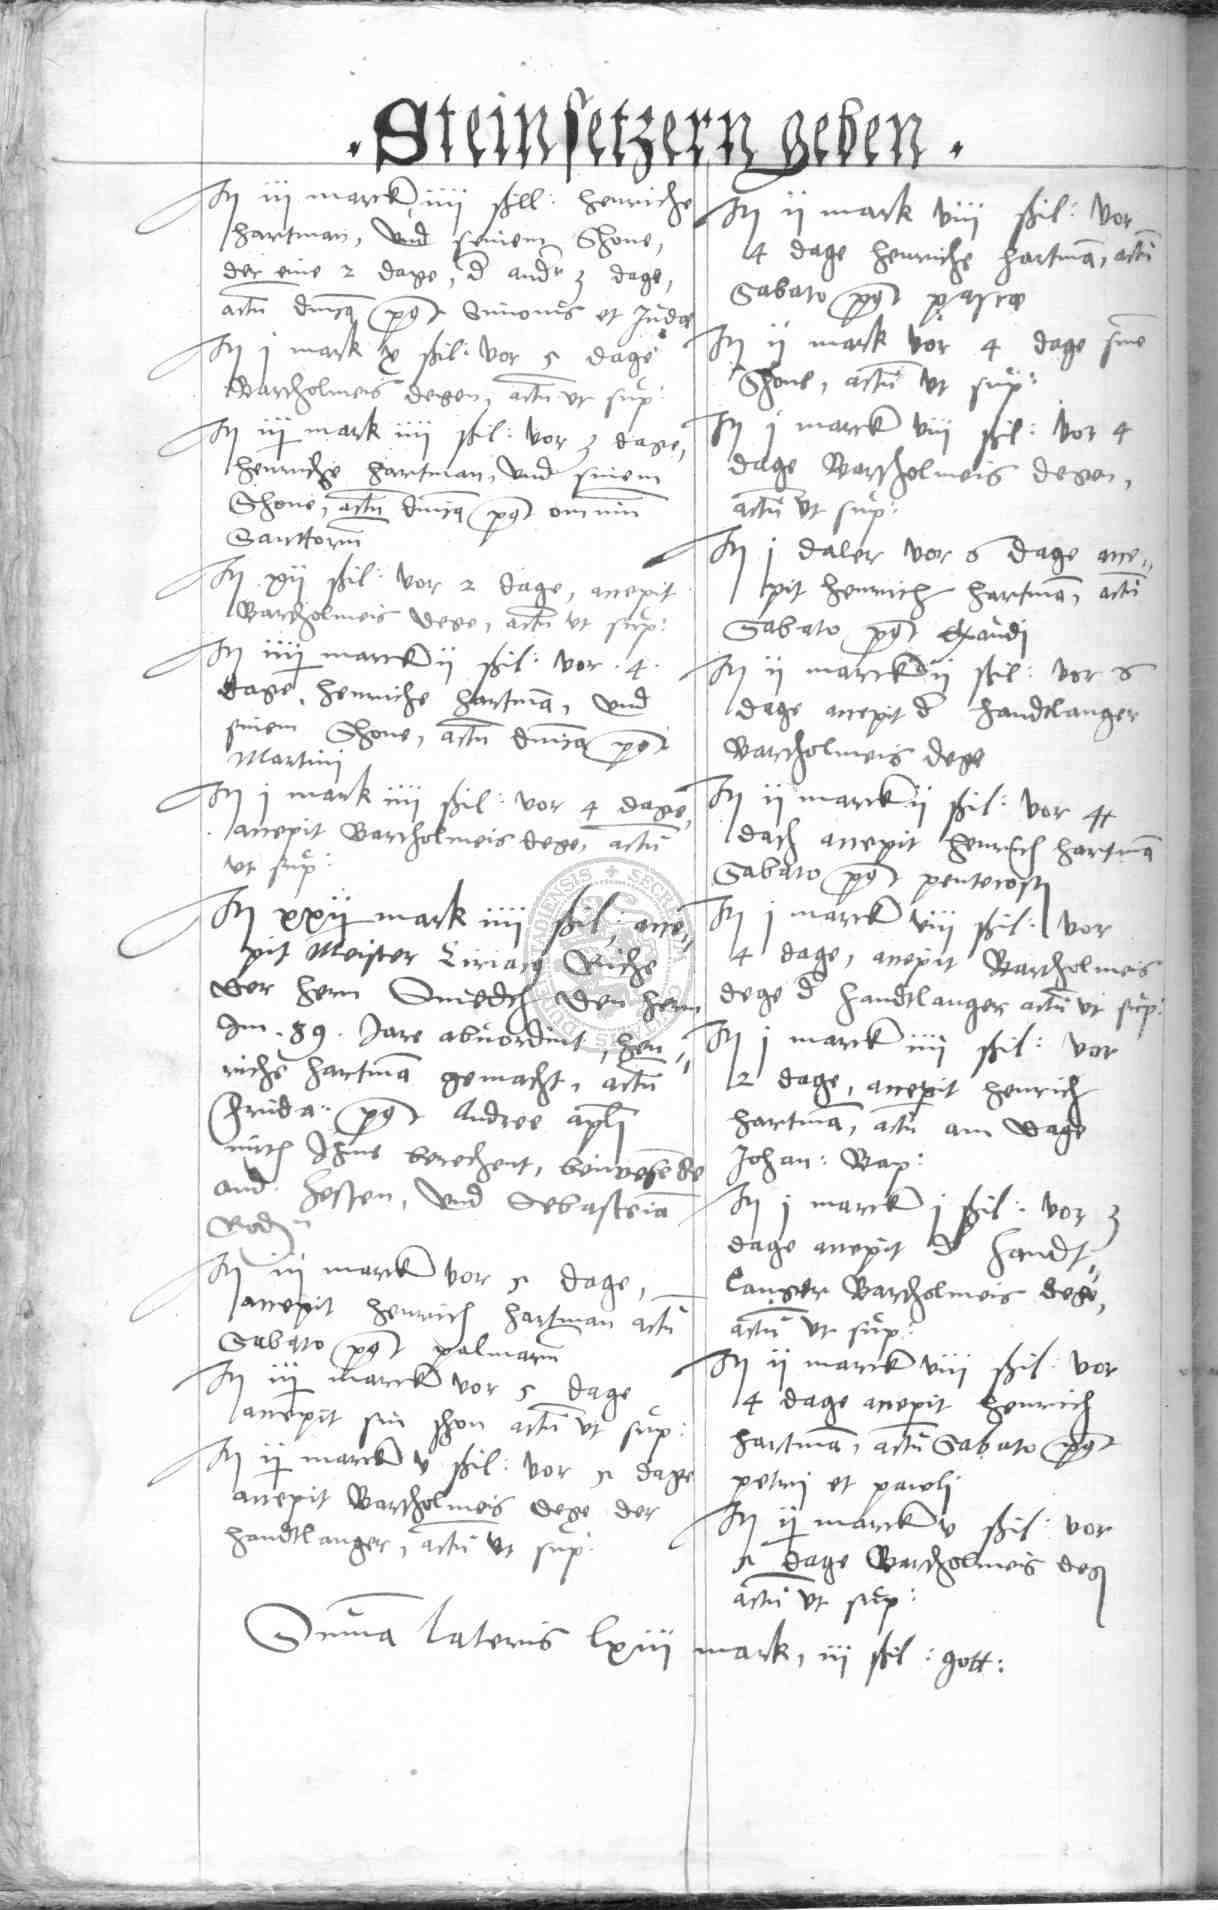 Steinsetzern geben
It iii marck iiii shill: Henriche
Hartman, und seinem Shone,
der eine 2 dage, d ander 3 dage,
actu dnica post Simonis et Judae
It j mark x shil: vor 5 dage
Bartholmeis degen, actu ut sup:
It iii mark iiii shil: vor 3 dage,
Henriche Hartman, und sinem
Shone, actu dnica post omnium
Sanctorum
It xii shil: vor 2 dage, accepit
Bartholmeis dege, actu ut sup:
It iiii marck ii shil: vor .4.
dage, Henriche Hartma, und
sinem Shone, actu dnica post
Martini
It j mark iiii shil: vor 4 dage,
accepit Bartholmeis dege, actu
ut sup:
It xxii mark iiii shil: acce-
pit Meister Ciriacy
der hern den hern
Im .89. Jare hen-
richs Hartma gemacht, actu
post Andree apli
berechent,
and: Hessen, und Sebastia
It iii marck vor 5 dage,
accepit Henrich Hartman actu
Sabato post palmaru
It iii marck vor 5 dage
accepit sin shon actu ut sup:
It ii marck v shil: vor 5 dage
accepit Bartholmeis dege der
handtlanger, actu ut sup:
It ii mark viii shil: vor
4 dage Henriche Hartma, actu
Sabato post pasce
It ii mark vor 4 dage sine
Shone, actu ut sup:
It j marck viii shil: vor 4
dage Bartholmeis degen,
actu ut sup:
It j daler vor 6 dage acce-
pit Henrich Hartma, actu
Sabato post Exaudi
It ii marck ii shil: vor 6
dage accepit d handtlanger
Bartholmeis dege
It ii marck ii shil: vor
dach accepit Henrich Hartma
Sabato post pentecost
It j marck viii shil: vor
4 dage, accepit Bartholmeis
dege d handtlanger actu ut sup:
It j marck iiii shil: vor
2 dage, accepit Henrich
Hartma, actu am dage
Johan: Bap:
It j marck j shil: vor 3
dage accepit d handt-
langer Bartholmeis dege,
actu ut sup:
It ii marck viii shil: vor
4 dage accepit Henrich
Hartma, actu Sabato post
petri et pauli
It ii marck v shil: vor
5 dage Bartholmeis deg
actu ut sup:
Suma lateris lxiii mark, iii shil: gott: